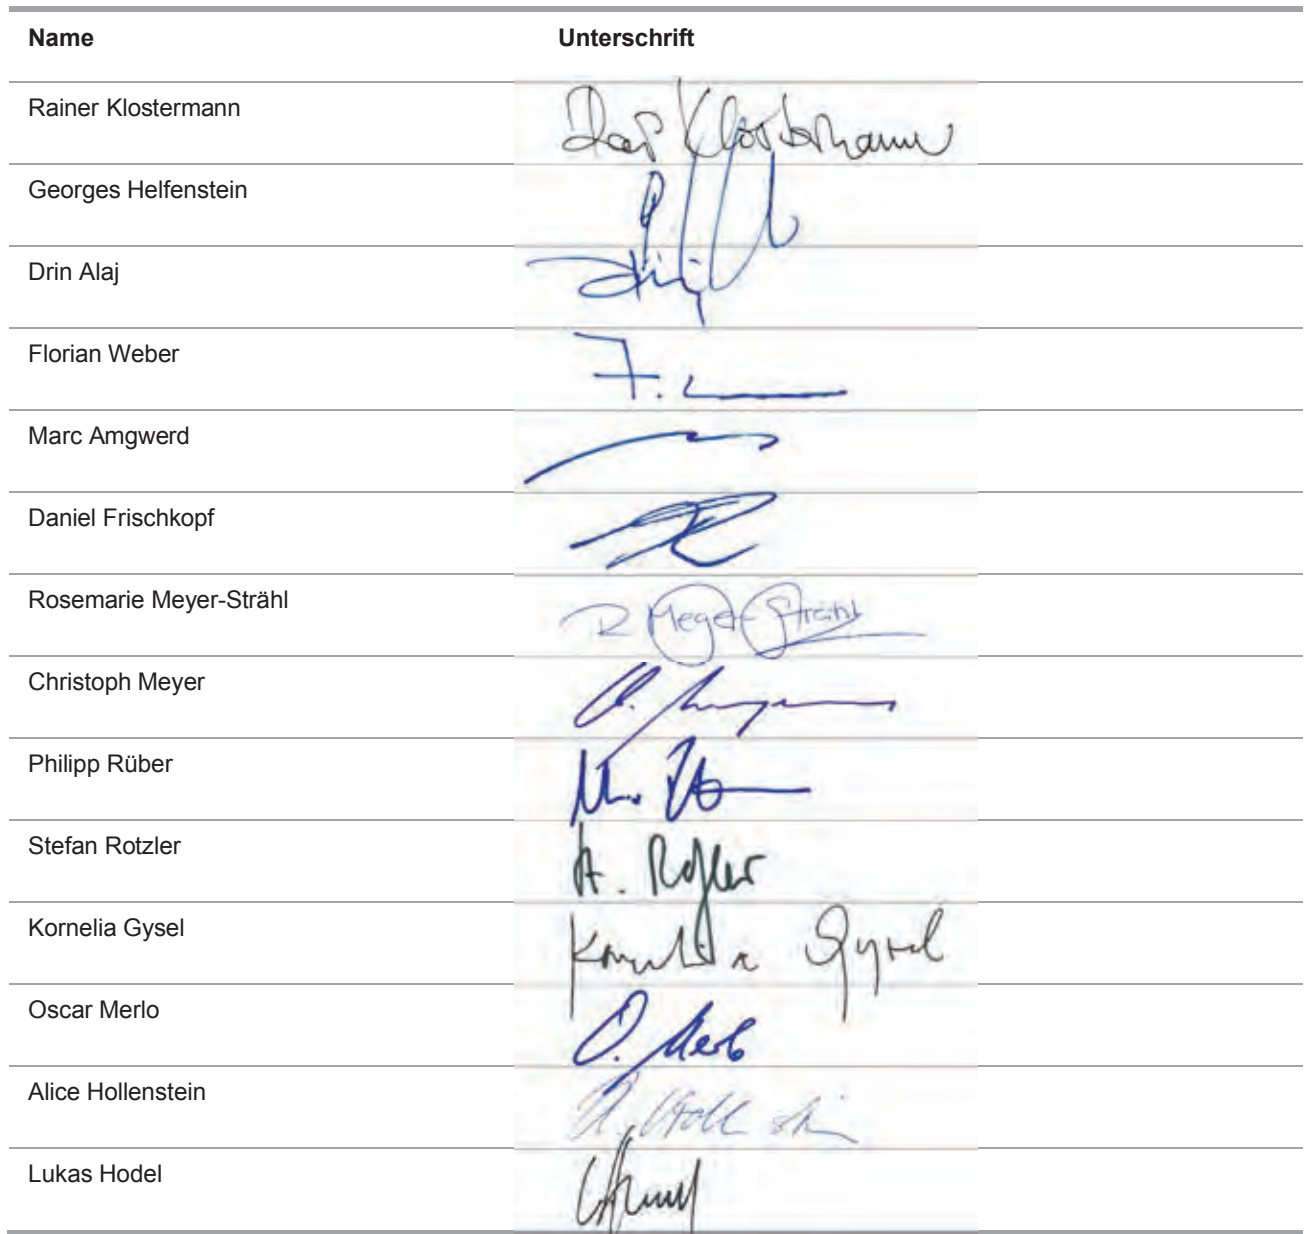 Name Unterschrift
Rainer Klostermann Klostermann
Georges Helfenstein
Drin Alaj
Florian Weber F.
Marc Amgwerd
Daniel Frischkopf
Rosemarie Meyer-Strähl R Meyer-Strähl
Christoph Meyer
Philipp Rüber
Stefan Rotzler
Kornelia Gysel Kornelia Gysel
Oscar Merlo O. Merlo
Alice Hollenstein
Lukas Hodel